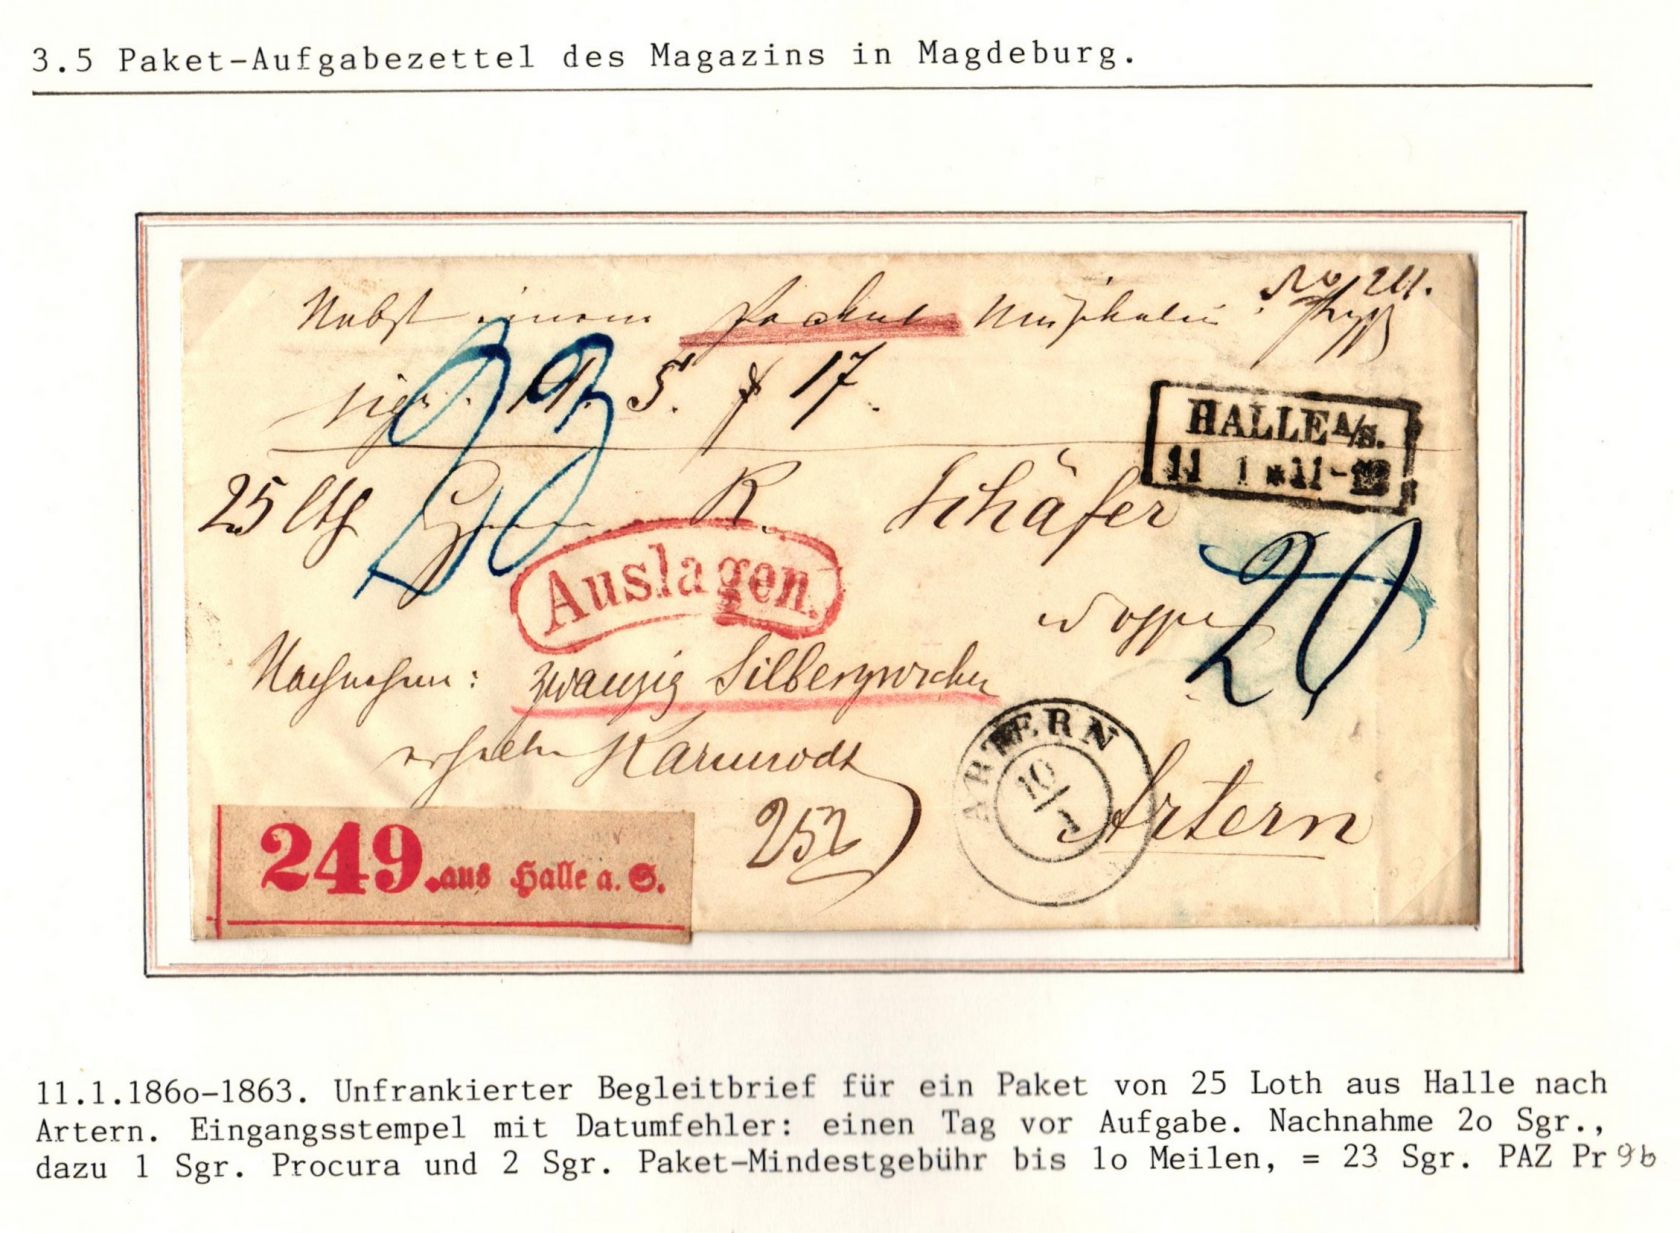 3.5 Paket-Aufgabezettel des Magazins in Magdeburg.
Nebst einem Packet Musikalien
sign. 5. 17.
HALLE A/S.
11 1 * 11-12
25 lth Herrn R. Schäfer
23
20
Auslagen.
Nachnahme: zwanzig Silbergroschen
erhalten Karmrodt
252
ARTERN
10/1
Artern
249. aus Halle a. S.
11.1.186o-1863. Unfrankierter Begleitbrief für ein Paket von 25 Loth aus Halle nach
Artern. Eingangsstempel mit Datumfehler: einen Tag vor Aufgabe. Nachnahme 2o Sgr.,
dazu 1 Sgr. Procura und 2 Sgr. Paket-Mindestgebühr bis 1o Meilen, = 23 Sgr. PAZ Pr 9b